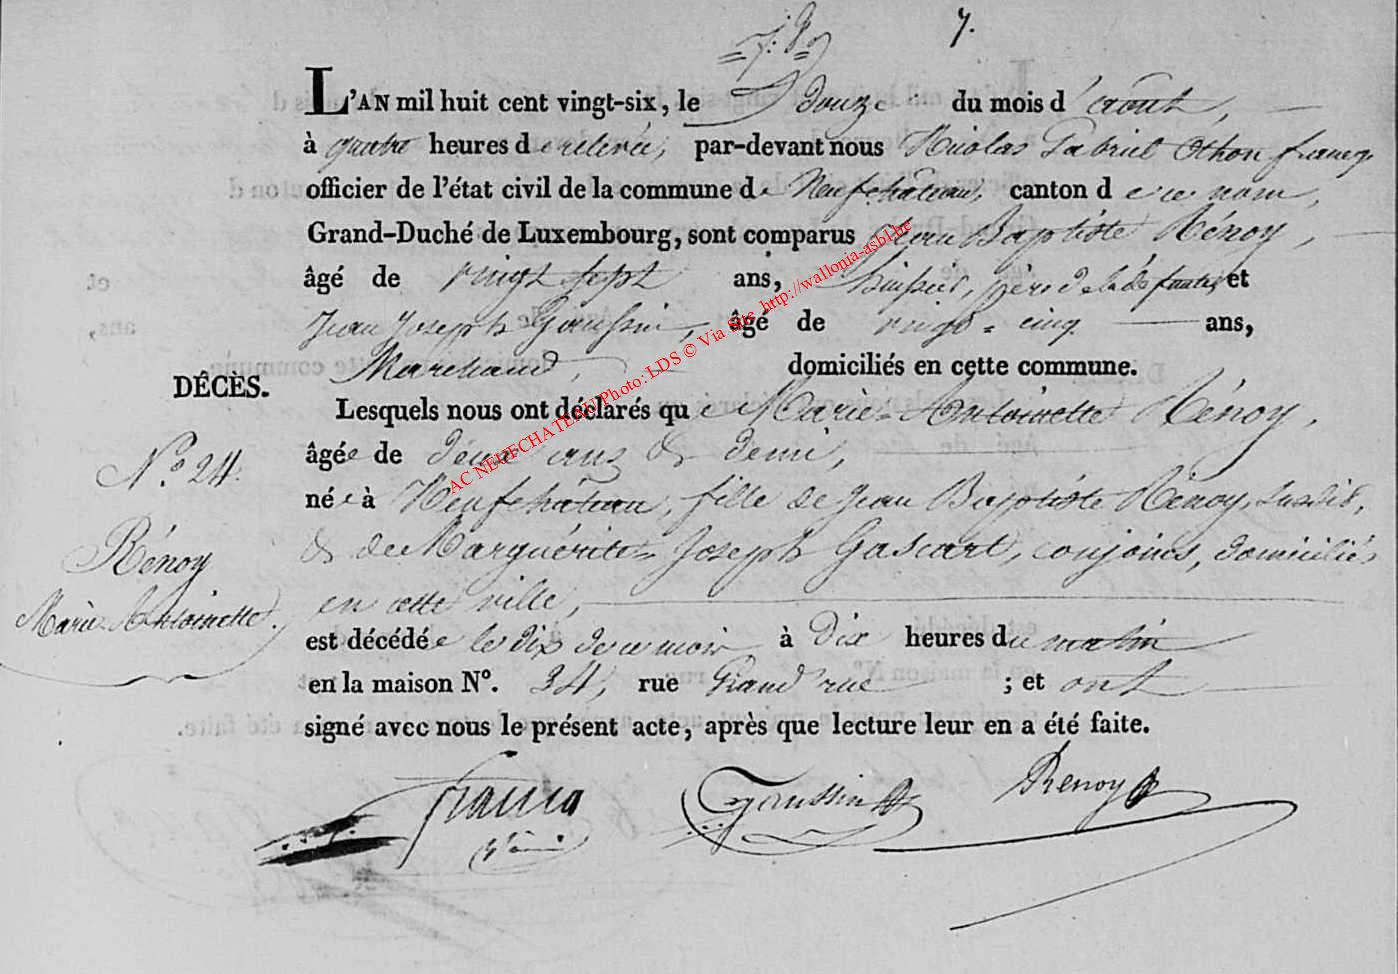 7.
L'AN mil huit cent vingt-six, le douze du mois d'août,
à quatre heures de relevée, par-devant nous Nicolas Gabriel Othon francq
officier de l'état civil de la commune de Neufchâteau, canton de ce nom,
Grand-Duché de Luxembourg, sont comparus Jean Baptiste Rénoy
âgé de vingt sept ans, huissier, père de la défunte, et
Jean Joseph Goussin, âgé de vingt-cinq ans,
Marchand, domiciliés en cette commune.
DÊCÈS.
Lesquels nous ont déclarés que Marie-Antoinette Rénoy,
âgée de deux ans & demi,
N.° 24.
née à Neufchâteau, fille de Jean Baptiste Rénoy, susdit,
Rénoy
& de Marguérite-Joseph Gascart, conjoins, domiciliés
Marie-Antoinette.
en cette ville,
est décédée le dix de ce mois à Dix heures du matin
en la maison N°. 34, rue Grand'rue ; et ont
signé avec nous le présent acte, après que lecture leur en a été faite.
francq Goussin Renoy
AC NEUFCHATEAU Photo: LDS © Via Site http://wallonia-asbl.be